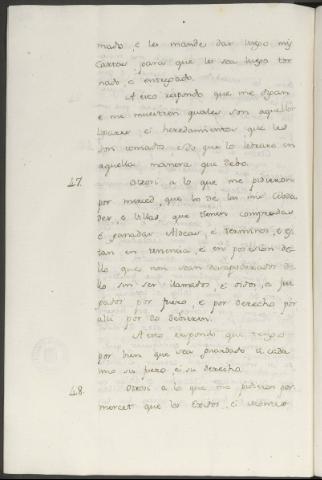 mado, e les mande dar luego mis
Cartas para que les sea luego tor
nado, e entregado.
A esto respondo que me digan
e me muestren quales son aquellos
lugares, e heredamientos que les
son tomados, e Yo que lo librare en
aquella manera que debo.
47. Otrosi a lo que me pidieron
por merced, que los de las mis Cibda
des, e Villas, que tienen compradas
e ganadas Aldeas, e terminos, e es
tan en tenencia, e en posesion de
llo que non sean desapoderados de
llo sin ser llamados, e oidos, e ju
gados por fuero, e por derecho por
alli por do debieren.
A esto respondo que tengo
por bien que sea guardado a cada
uno su fuero, e su derecho.
48. Otrosi a lo que me pidieron por
mercet que los Exidos, e